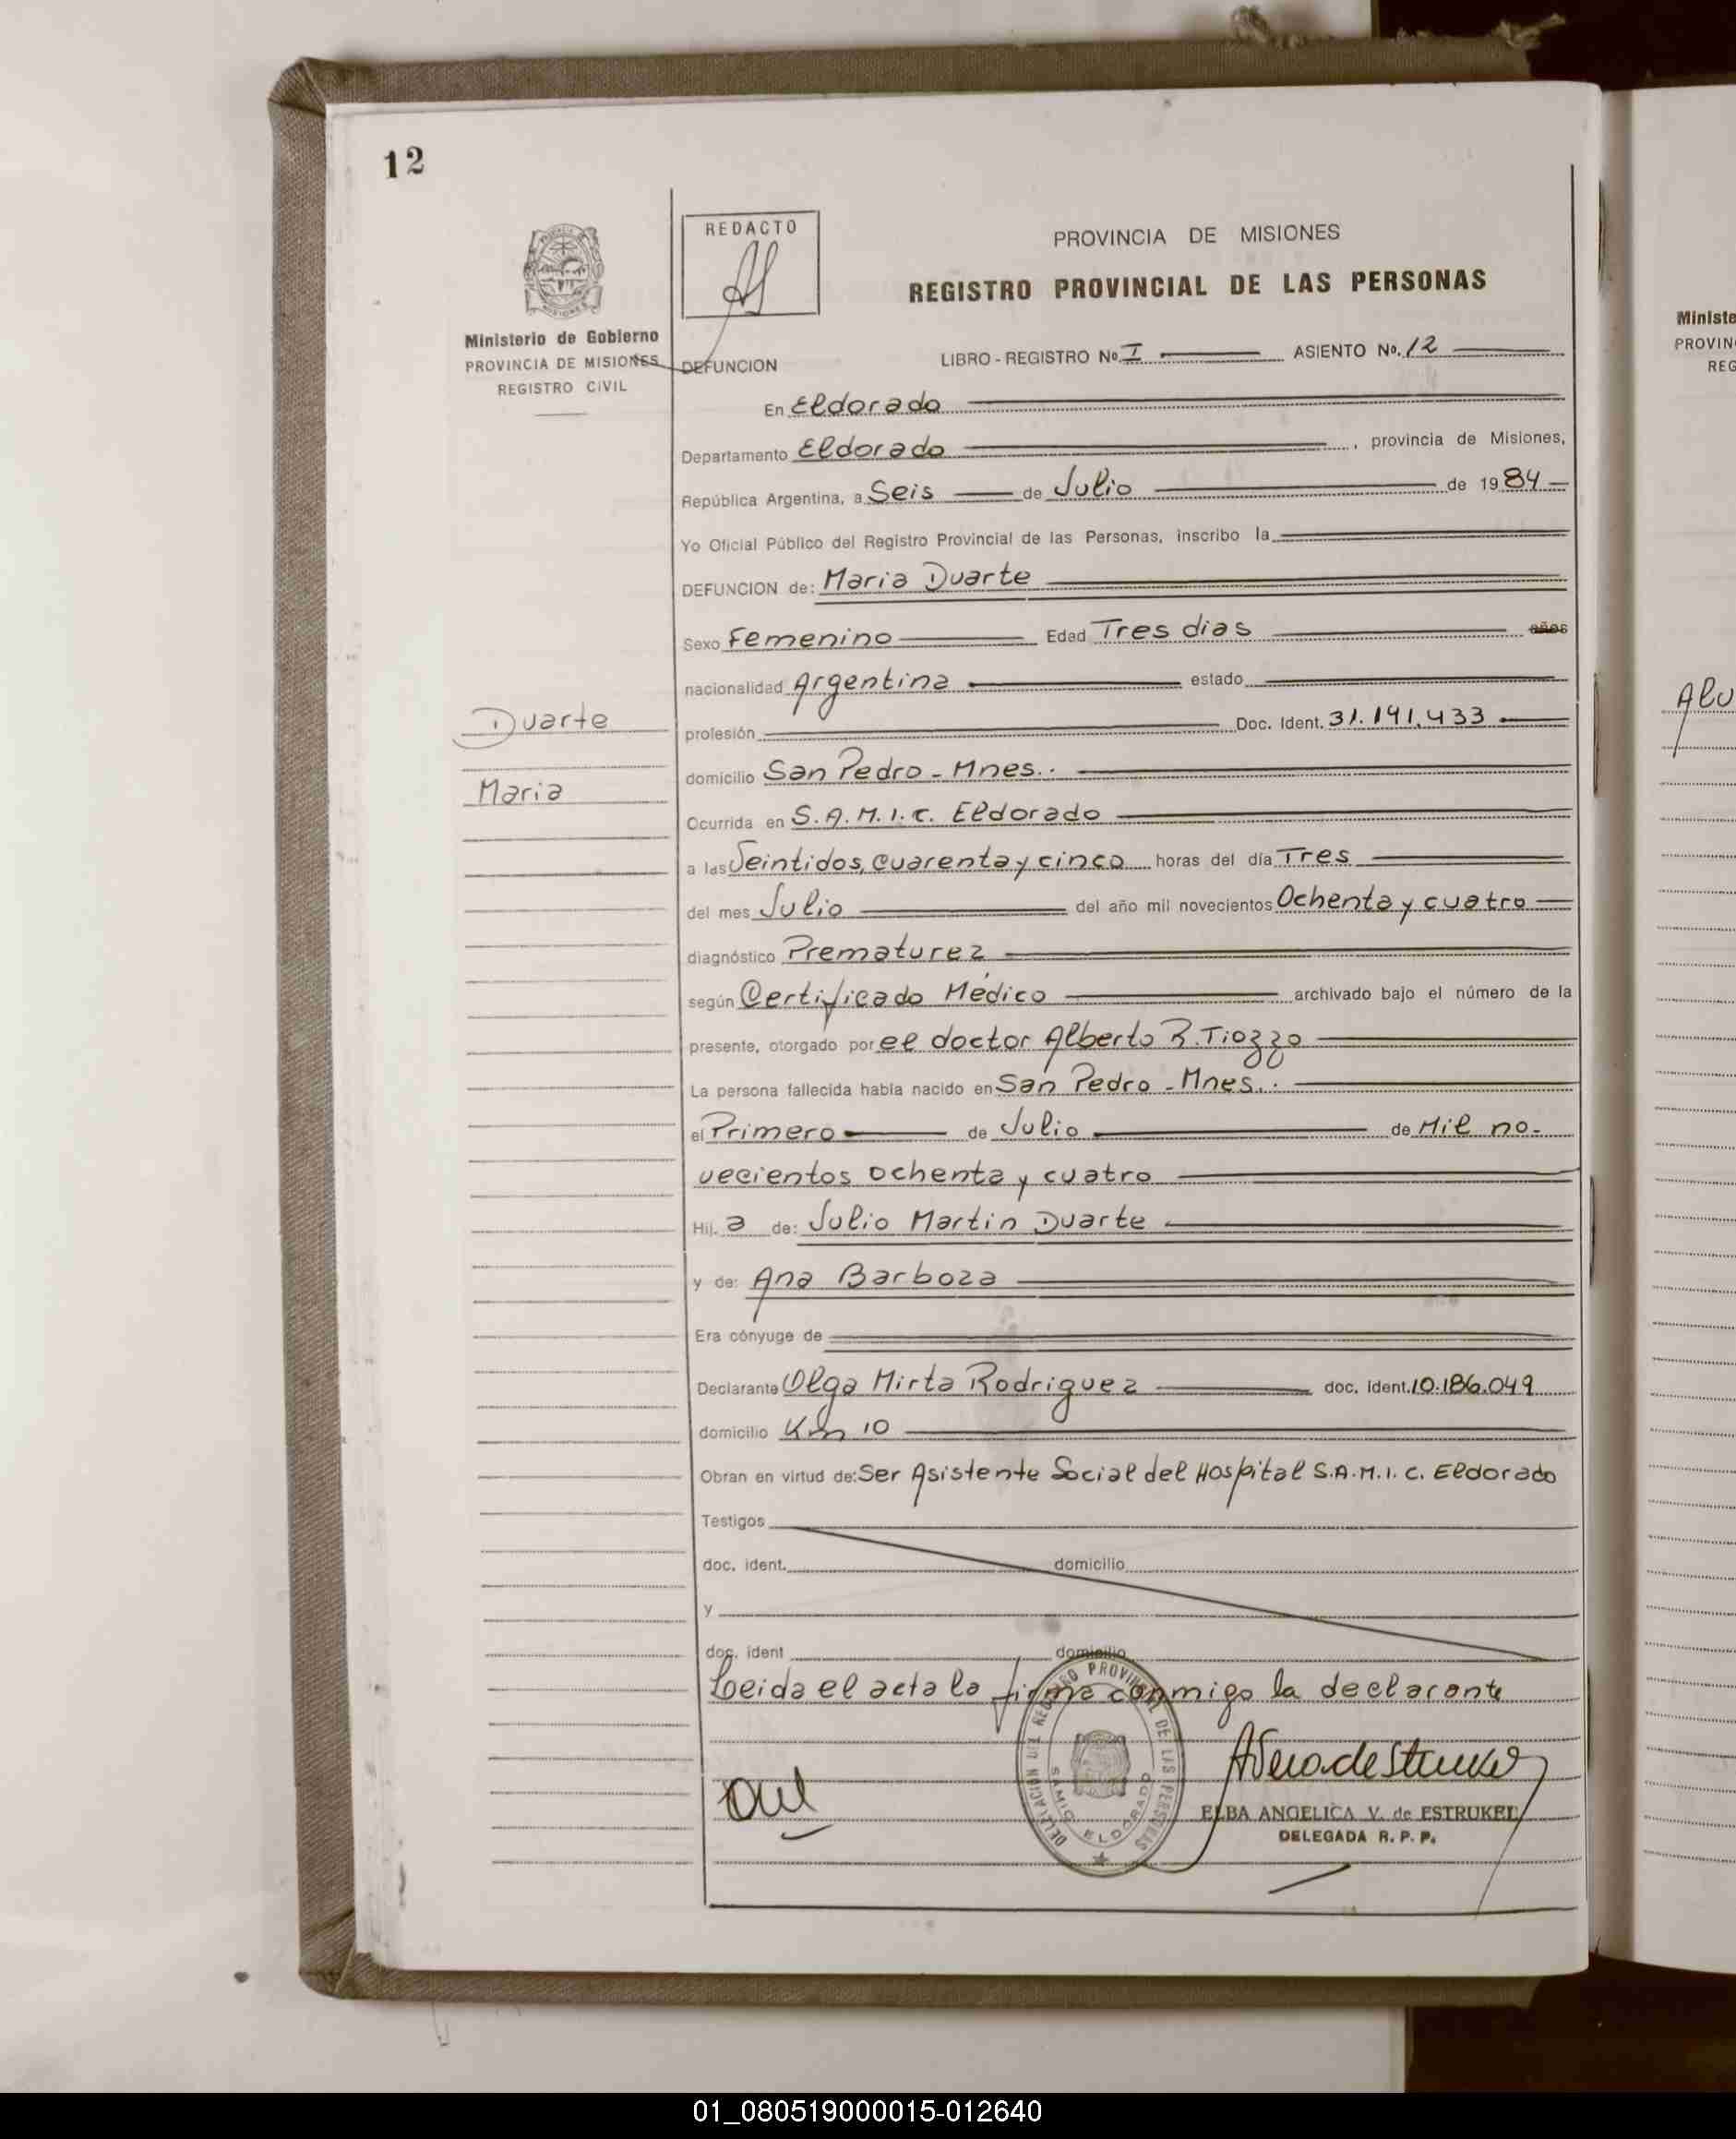 12
REDACTO
PROVINCIA DE MISIONES
REGISTRO PROVINCIAL DE LAS PERSONAS
Ministerio de Gobierno
PROVINCIA DE MISIONES
REGISTRO CIVIL
DEFUNCION LIBRO - REGISTRO No. I ASIENTO No. 12
En Eldorado
Departamento Eldorado, provincia de Misiones,
República Argentina, a Seis de Julio de 1984
Yo Oficial Público del Registro Provincial de las Personas, inscribo la
DEFUNCION de: Maria Duarte
Sexo Femenino Edad Tres dias años
nacionalidad Argentina estado
Duarte
profesión Doc. Ident. 31.191.433
domicilio San Pedro - Mnes.
Maria
Ocurrida en S.A.M.I.C. Eldorado
a las Veintidos, cuarenta y cinco horas del día Tres
del mes Julio del año mil novecientos Ochenta y cuatro
diagnóstico Prematurez
según Certificado Médico archivado bajo el número de la
presente, otorgado por el doctor Alberto R. Tiozzo
La persona fallecida había nacido en San Pedro - Mnes.
el Primero de Julio de Mil no-
vecientos ochenta y cuatro
Hij a de: Julio Martin Duarte
y de: Ana Barboza
Era cónyuge de
Declarante Olga Mirta Rodriguez doc. ident. 10.186.049
domicilio Km 10
Obran en virtud de: Ser Asistente Social del Hospital S.A.M.I.C. Eldorado
Testigos
doc. ident. domicilio
y
doc. ident domicilio
Leida el acta la firma conmigo la declarante
DELEGACION DEL REGISTRO PROVINCIAL DE LAS PERSONAS
SAMIC ELDORADO
ELBA ANGELICA V. de ESTRUKEL
DELEGADA R. P. P.
Ministe
PROVIN
REG
Alv
01_080519000015-012640